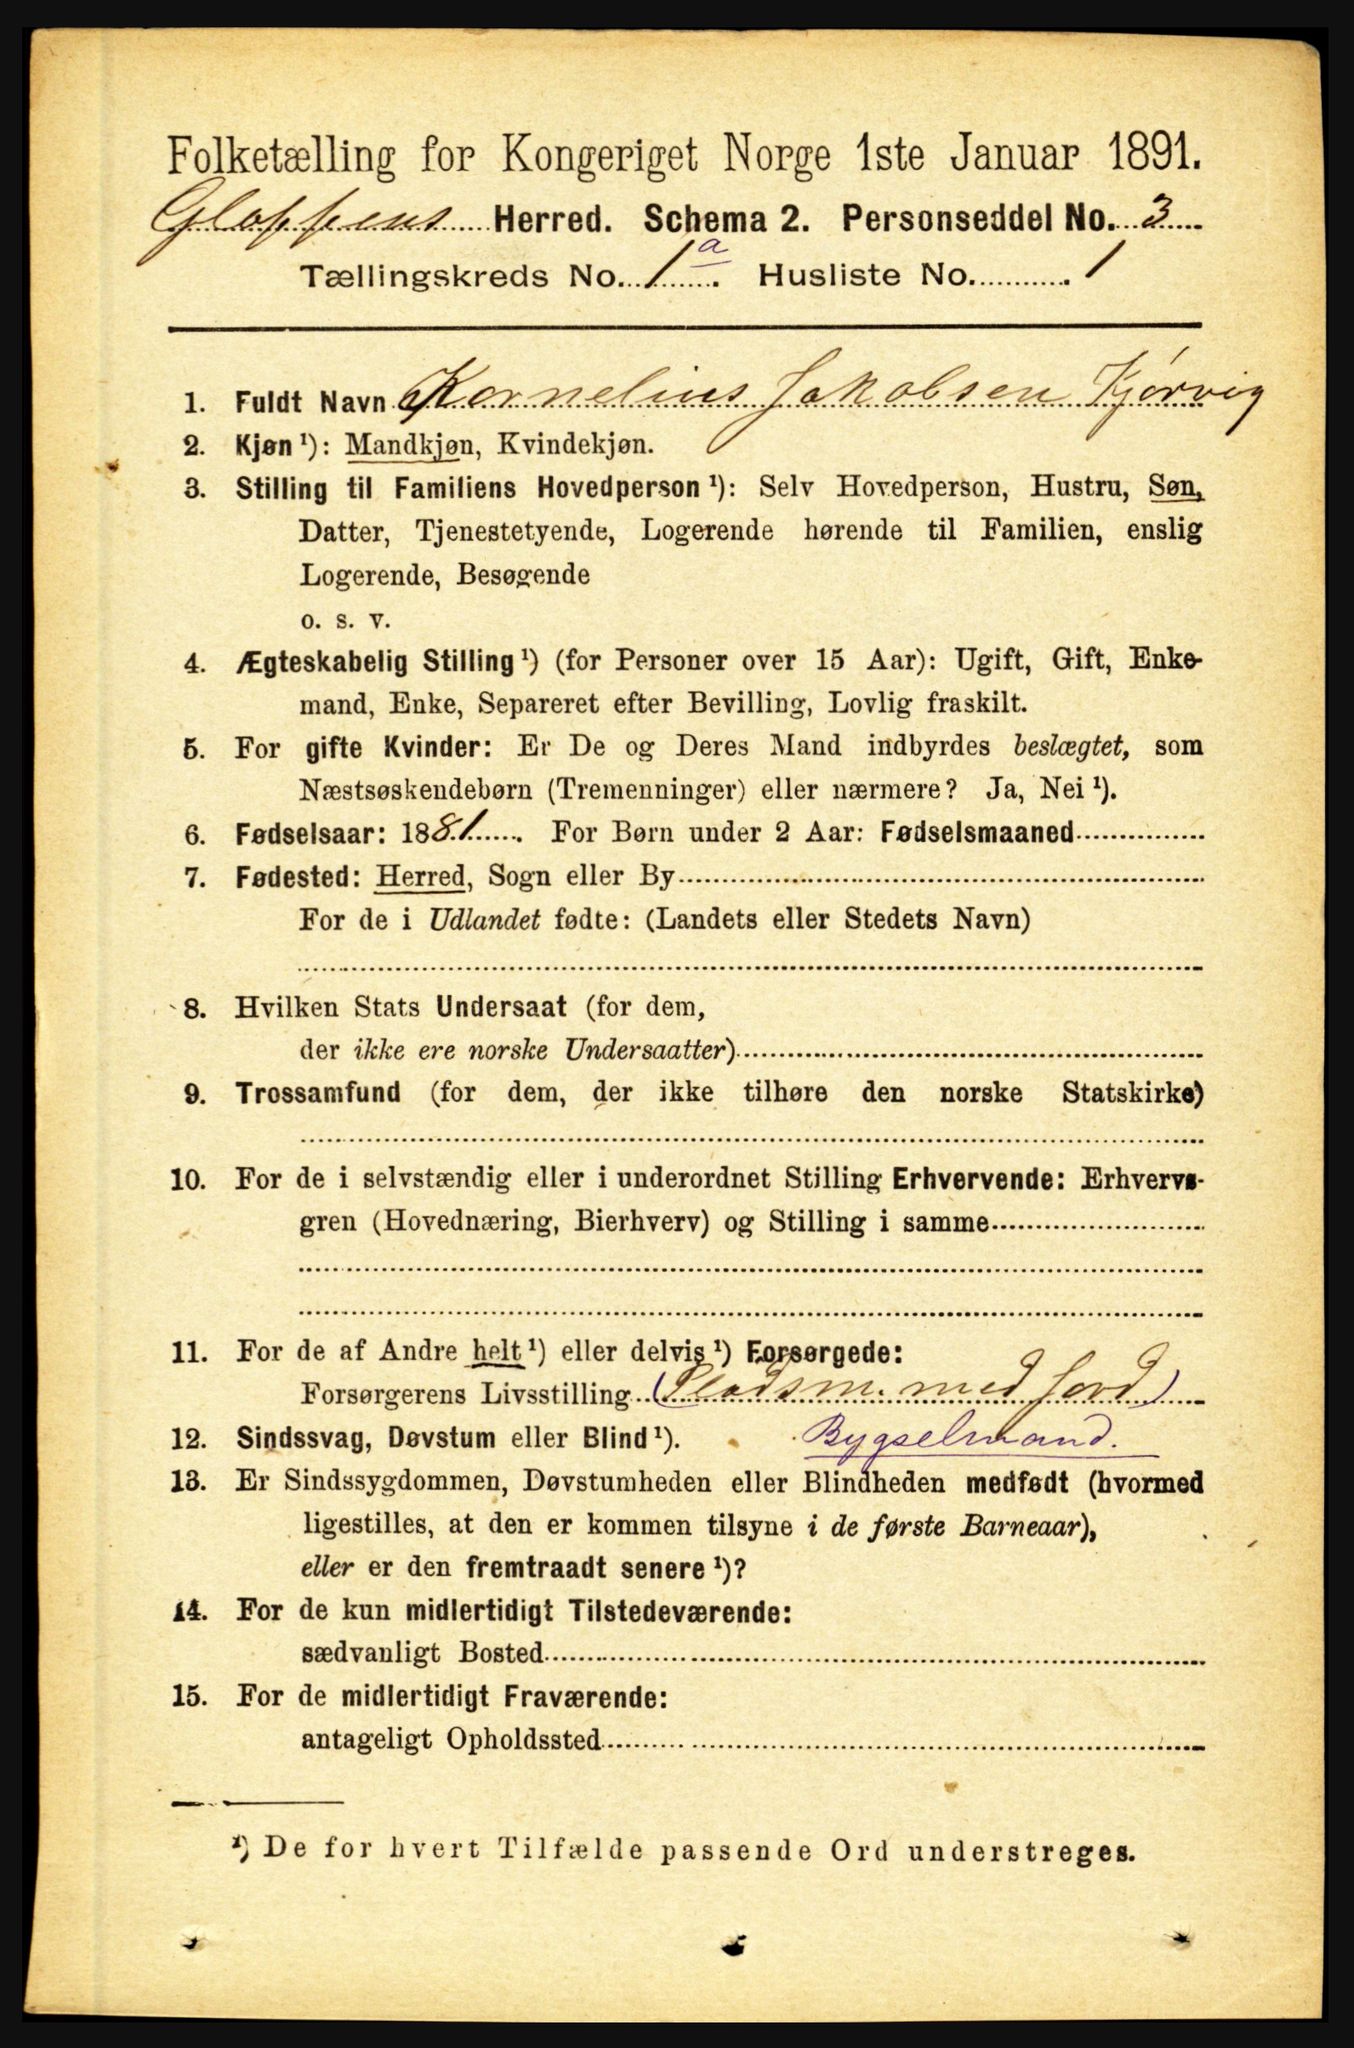 Folketælling for Kongeriget Norge 1ste Januar 1891.
Gloppens Herred. Schema 2. Personseddel No. 3
Tællingskreds No. 1a. Husliste No. 1
1. Fuldt Navn Kornelius Jakobsen Kjørvig
2. Kjøn ¹): Mandkjøn, Kvindekjøn.
3. Stilling til Familiens Hovedperson ¹): Selv Hovedperson, Hustru, Søn,
Datter, Tjenestetyende, Logerende hørende til Familien, enslig
Logerende, Besøgende
o. s. v.
4. Ægteskabelig Stilling ¹) (for Personer over 15 Aar): Ugift, Gift, Enke-
mand, Enke, Separeret efter Bevilling, Lovlig fraskilt.
5. For gifte Kvinder: Er De og Deres Mand indbyrdes beslægtet, som
Næstsøskendebørn (Tremenninger) eller nærmere? Ja, Nei ¹).
6. Fødselsaar: 1881. For Børn under 2 Aar: Fødselsmaaned
7. Fødested: Herred, Sogn eller By
For de i Udlandet fødte: (Landets eller Stedets Navn)
8. Hvilken Stats Undersaat (for dem,
der ikke ere norske Undersaatter)
9. Trossamfund (for dem, der ikke tilhøre den norske Statskirke)
10. For de i selvstændig eller i underordnet Stilling Erhvervende: Erhvervs-
gren (Hovednæring, Bierhverv) og Stilling i samme
11. For de af Andre helt ¹) eller delvis ¹) Forsørgede:
Forsørgerens Livsstilling (Pladsm. med Jord)
12. Sindssvag, Døvstum eller Blind ¹). Bygselmand.
13. Er Sindssygdommen, Døvstumheden eller Blindheden medfødt (hvormed
ligestilles, at den er kommen tilsyne i de første Barneaar),
eller er den fremtraadt senere ¹)?
14. For de kun midlertidigt Tilstedeværende:
sædvanligt Bosted
15. For de midlertidigt Fraværende:
antageligt Opholdssted
¹) De for hvert Tilfælde passende Ord understreges.